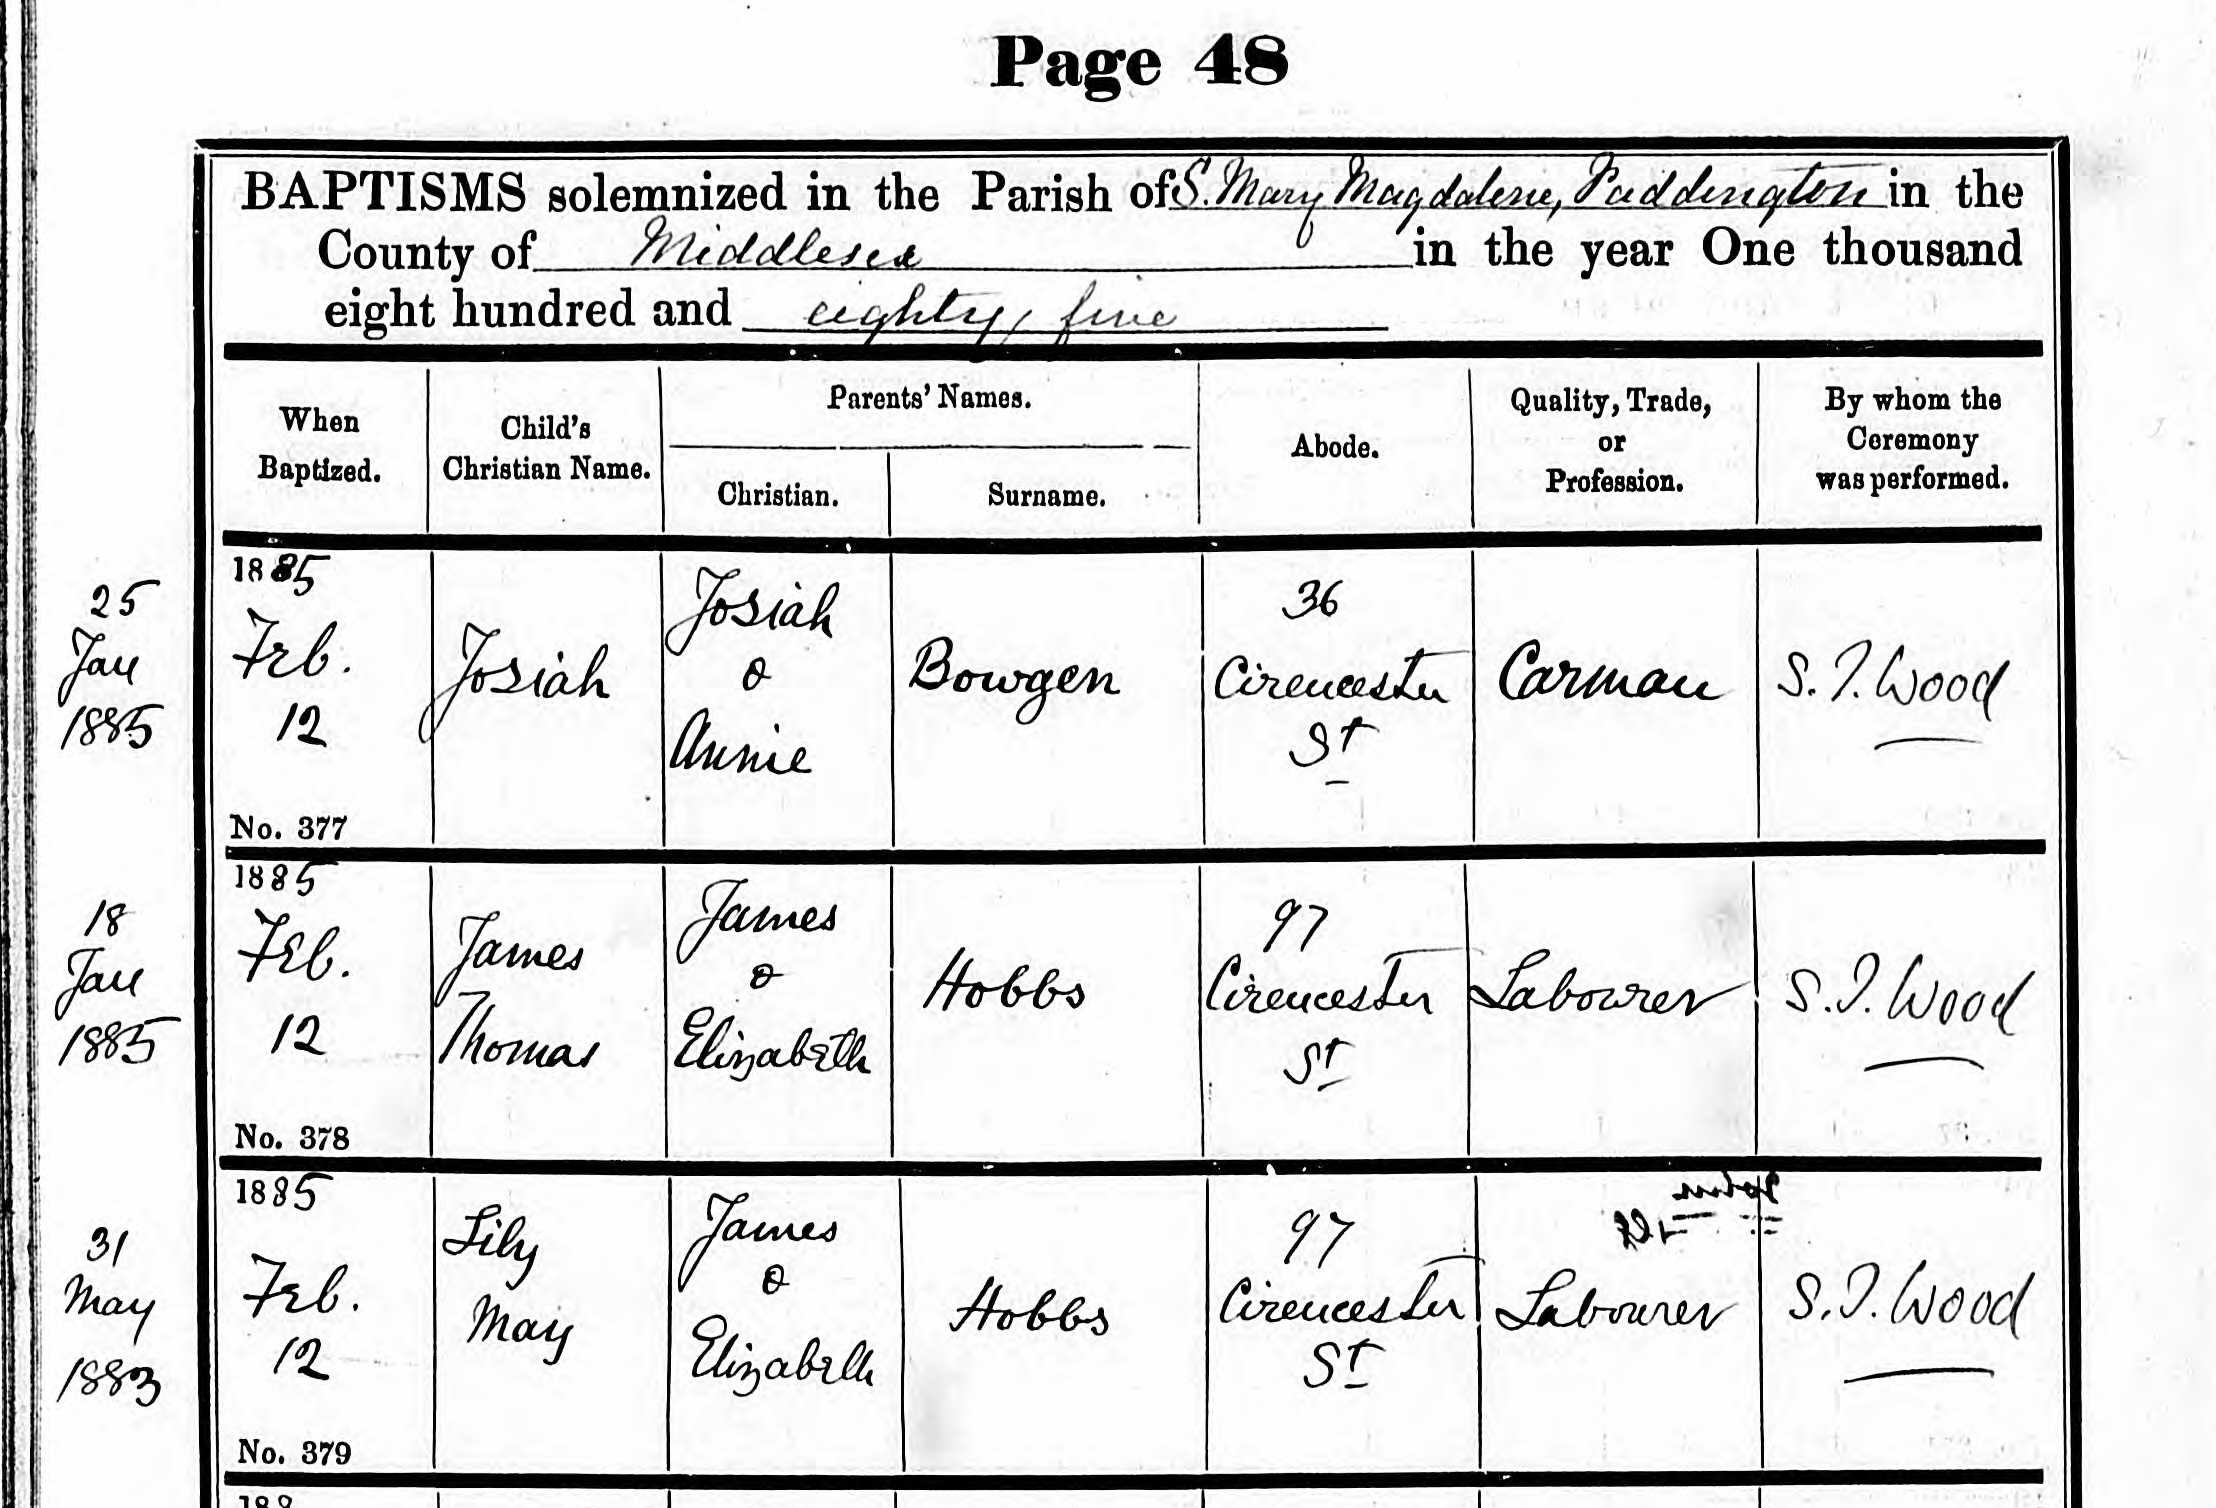 Page 48
BAPTISMS solemnized in the Parish of S. Mary Magdalene, Paddington in the
County of Middlesex in the year One thousand
eight hundred and eighty, five
When
Baptized.
Child's
Christian Name.
Parents' Names.
Christian.
Surname.
Abode.
Quality, Trade,
or
Profession.
By whom the
Ceremony
was performed.
25
Jan
1885
1885
Feb.
12
No. 377
Josiah
Josiah
&
Annie
Bowgen
36
Cirencester
St
Carman
S. J. Wood
18
Jan
1885
1885
Feb.
12
No. 378
James
Thomas
James
&
Elizabeth
Hobbs
97
Cirencester
St
Labourer
S. J. Wood
31
May
1883
1885
Feb.
12
No. 379
Lily
May
James
&
Elizabeth
Hobbs
97
Cirencester
St
Labourer
S. J. Wood
188